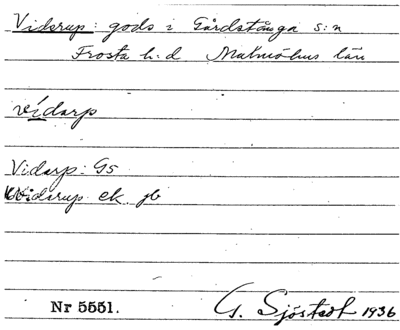 Viderup: gods i Gårdstånga s:n
Frosta h:d Malmöhus län
vídarp
Vidarp: G5
Widarup ek. jb
Nr 5551.
G. Sjöstedt 1936